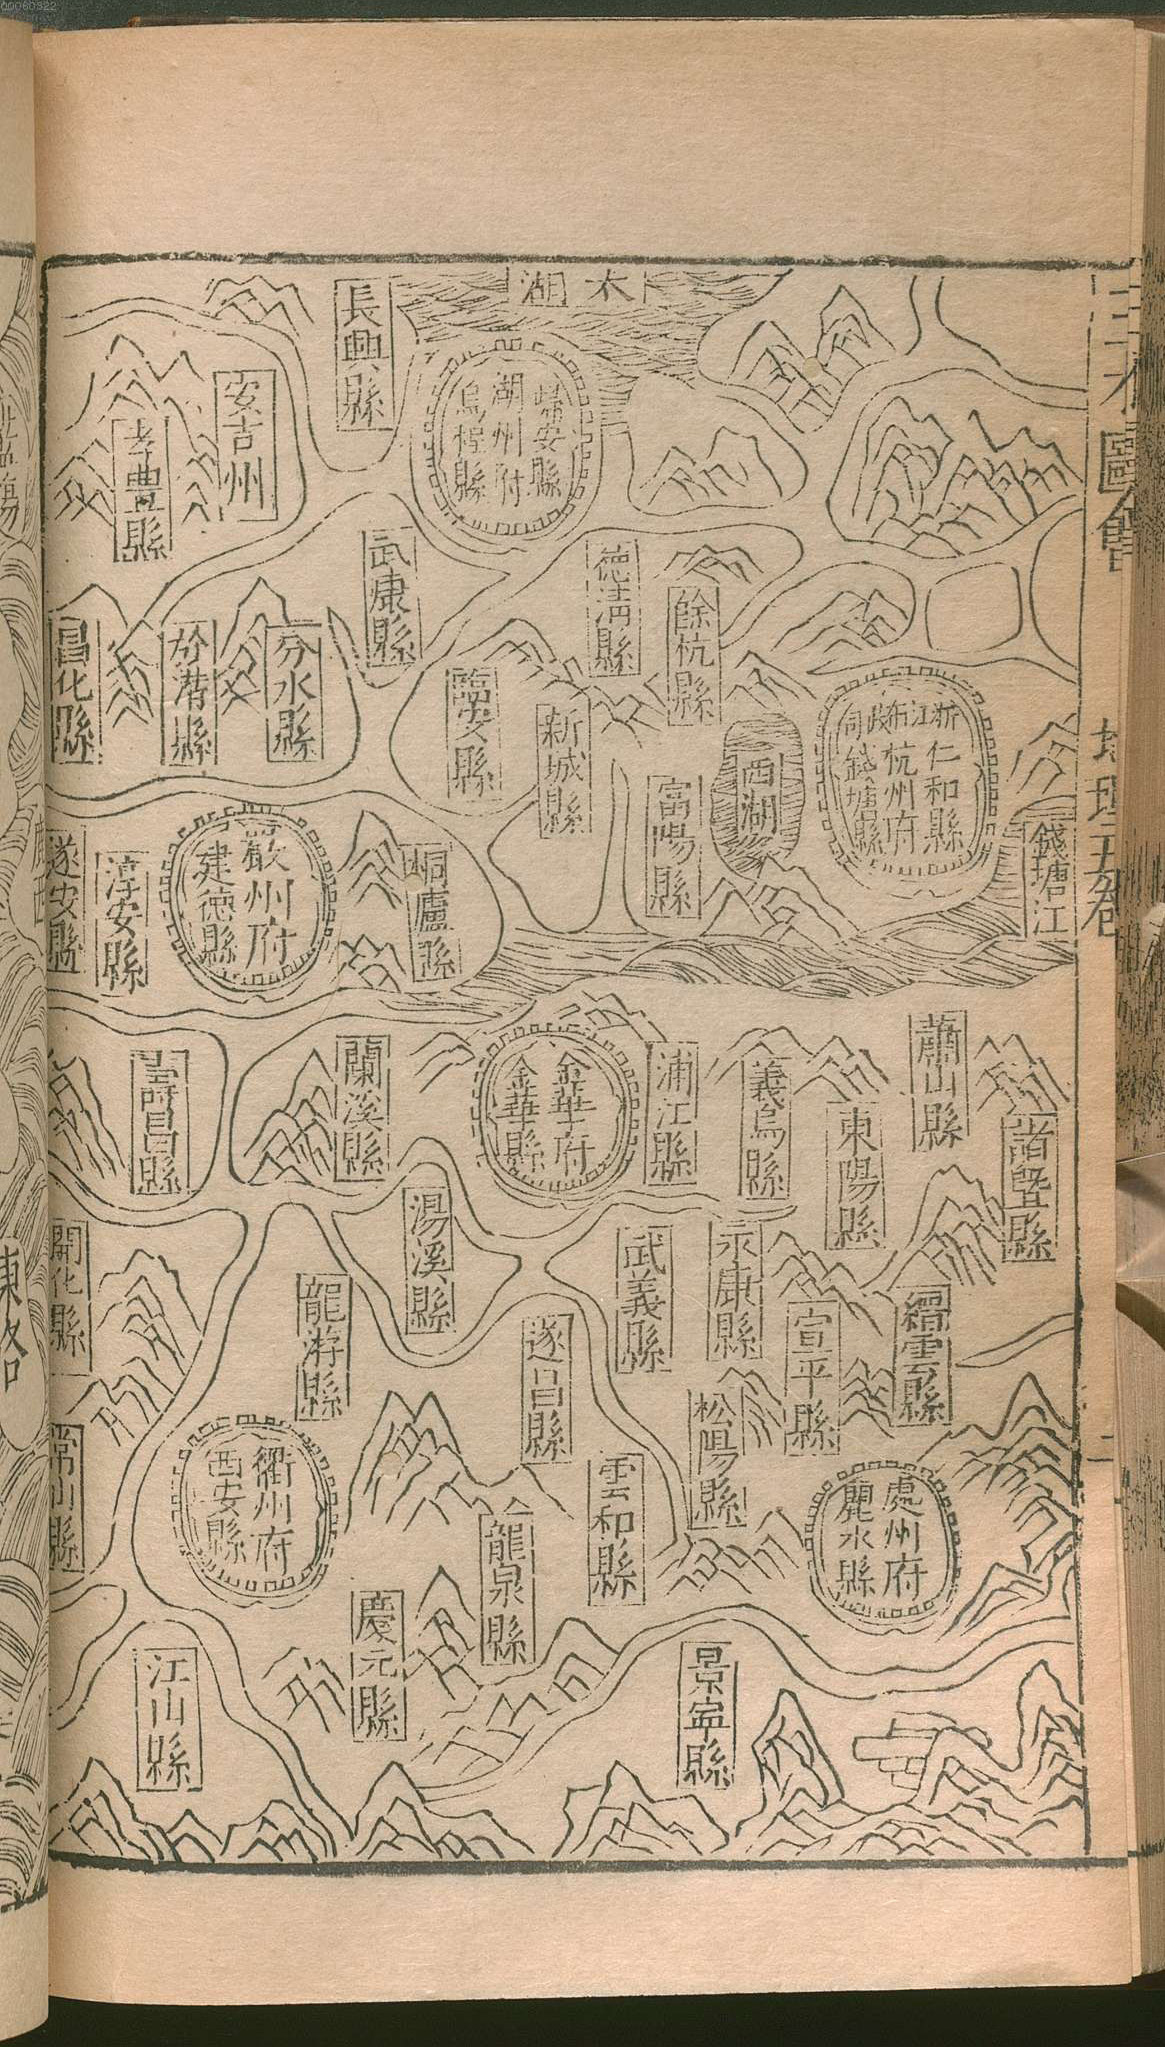 00060322
太湖
長興縣
歸安縣
湖州府
烏程縣
安吉州
孝豐縣
武康縣
德清縣
餘杭縣
昌化縣
於潛縣
分水縣
臨安縣
新城縣
富陽縣
西湖
浙江布政司
仁和縣
杭州府
錢塘縣
錢塘江
地理五卷
遂安縣
淳安縣
嚴州府
建德縣
桐廬縣
壽昌縣
蘭溪縣
金華府
金華縣
浦江縣
義烏縣
東陽縣
蕭山縣
諸暨縣
開化縣
龍游縣
湯溪縣
遂昌縣
武義縣
永康縣
宣平縣
縉雲縣
常山縣
衢州府
西安縣
雲和縣
松陽縣
處州府
麗水縣
江山縣
慶元縣
龍泉縣
景寧縣